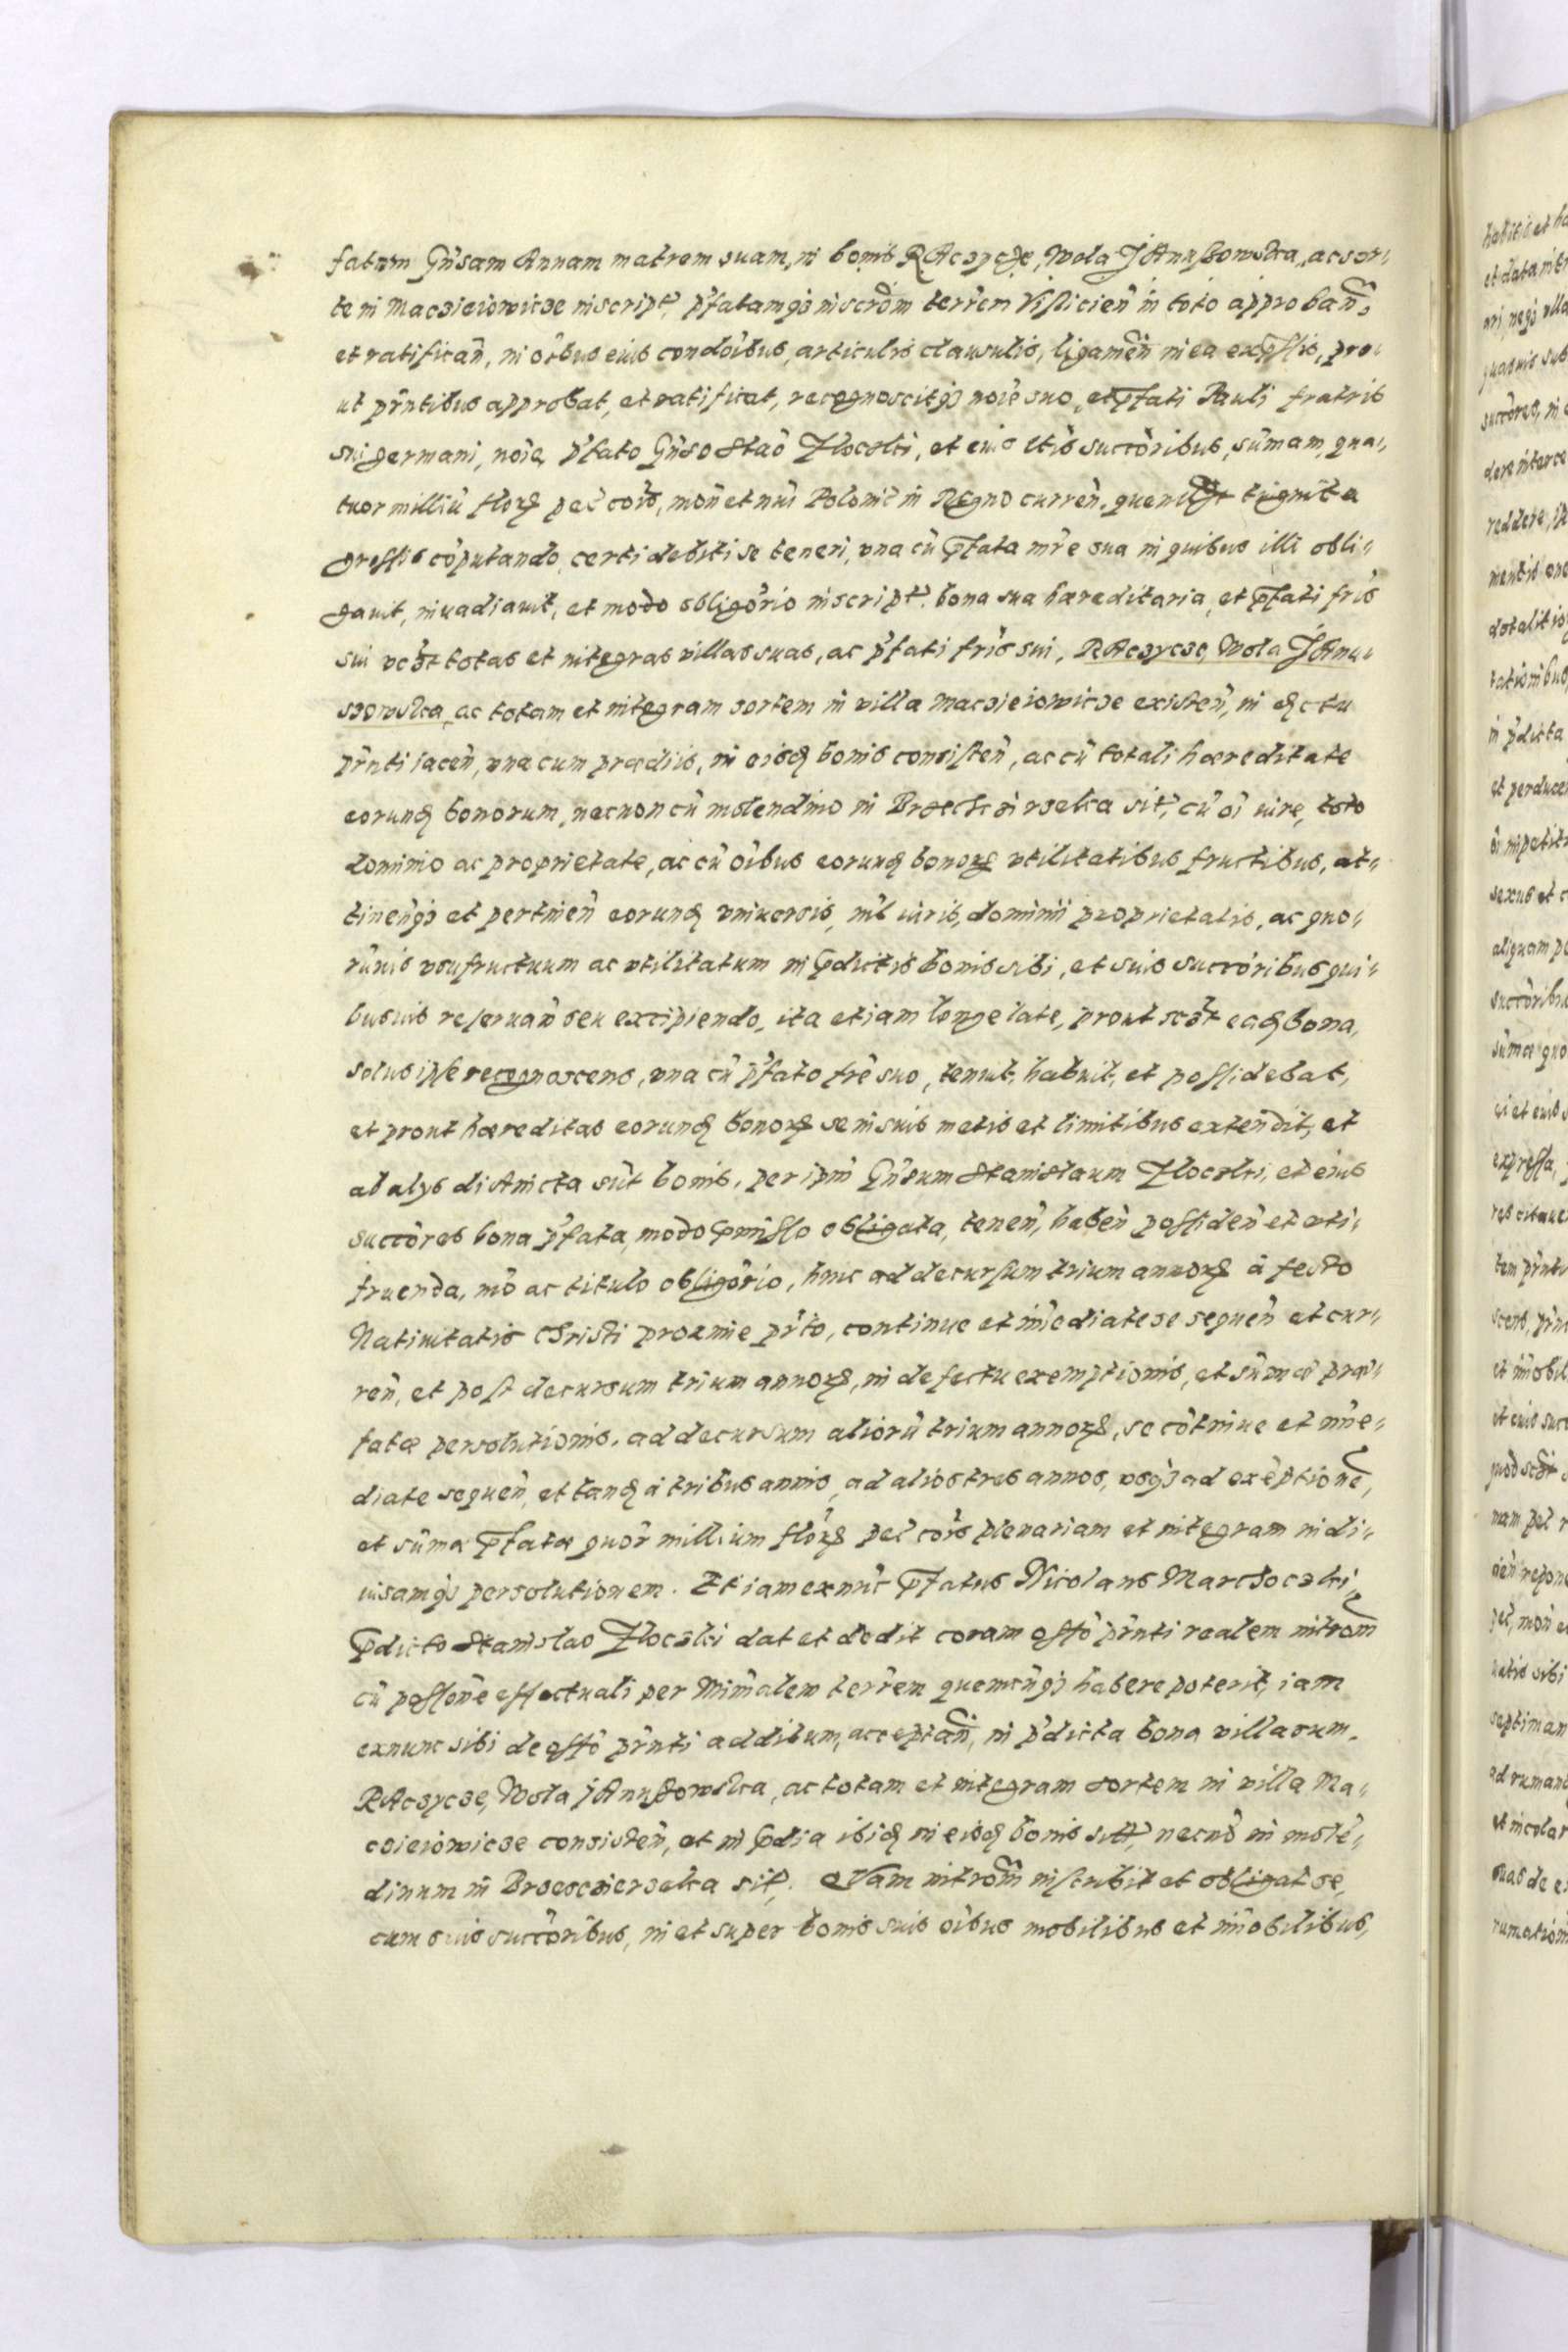 fatam Gn̄sam Annam matrem suam, in bonis RAczycze, Wola JAnuszowska, ac sor„
te in Maczieiowicze inscript' p̄fatamq3 inscr̄om terr̄em Visliciēn in toto approbān,
et ratificān, in oībus eius condōibus, articulis clausulis, ligamēn in ea exp̄ssis, pro„
ut pr̄ntibus approbat, et ratificat, recognoscitq3 noīe suo, et p̄fati Pauli fratris
sui germani, noīe, p̄fato Gn̄so Staō Zloczki, et eius ltīs succ̄oribus, sūmam, qua„
tuor milliū flor̄ pec̄ coīs, mōn et nūi Polonic̄ in Regno currēn, quemlibet triginta
grossis cōputando, certi debiti se teneri, vna cū p̄fata mr̄e sua in quibus illi obli„
gauit, inuadiauit, et modo obligōrio inscript'. bona sua hæreditaria, et p̄fati fr̄is
sui vc̄zt totas et integras villas suas, ac p̄fati fr̄is sui, RAczycze, Wola JAnu„
szowska, ac totam et integram sortem in villa Macziejowicze existēn, in districtu
pr̄nti iacēn, vna cum prædiis, in eisdē bonis consistēn, ac cū totali hæreditate
eorundē bonorum, necnon cū molendino in sit', cū oī iure, toto
dominio ac proprietate, ac cū oībus eorundē bonor̄ vtilitatibus fructibus, at„
tinēnq3 et pertinēn eorundē vniuersis, nīl iuris, dominii proprietatis, ac quo„
rūuis vsufructuum ac vtilitatum in p̄dictis bonis sibi, et suis succ̄oribus qui„
busuis reseruān seu excipiendo, ita etiam longe late, prout sc̄zt eadē bona,
solus ipse recognoscens, vna cū p̄fato fr̄e suo, tenuit, habuit, et possidebat,
et prout hæreditas eorundē bonor̄ se in suis metis et limitibus extendit, et
ab alys distincta sūt bonis, per ipm̄ Gn̄sum Stanislaum Zloczki, et eius
succ̄ores bona p̄fata, modo p̄misso obligata, tenēn, habēn possidēn et uti„
fruenda, mō ac titulo obligōrio, hinc ad decursum trium annor̄ à festo
Natiuitatis Christi proxime pr̄to, continue et im̄ediate se sequēn et cur„
rēn, et post decursum trium annor̄, in defectu exemptionis, et sūmæ præ„
fatæ persolutionis, ad decursum aliorū trium annor̄, se cōtinue et im̄e„
diate sequēn, et tandē à tribus annis, ad alios tres annos, vsq3 ad exēptionē,
et sūmæ p̄fatæ quōr millium flor̄ pec̄ coīs plenariam et integram indi„
uisamq3 persolutionem. Et iam exnūc p̄fatus Nicolaus Marchoczki,
p̄dicto Stanislao Zloczki dat et dedit coram offō pr̄nti realem intrōm
cū possōne effectuali per Minr̄alem terr̄em quemcūq3 habere poterit, iam
exnunc sibi de offō pr̄nti additum, acceptān, in p̄dicta bona villarum.
RAczycze, Wola JAnuszowska, ac totam et integram sortem in villa Ma„
cziejowicze consistēn, et in p̄dia ibidē in eisdē bonis sit' necnō in molē„
dinum in sit'. Quam intrōm inscribit et obligat se,
cum suis succ̄oribus, in et super bonis suis oībus mobilibus et im̄obilibus,